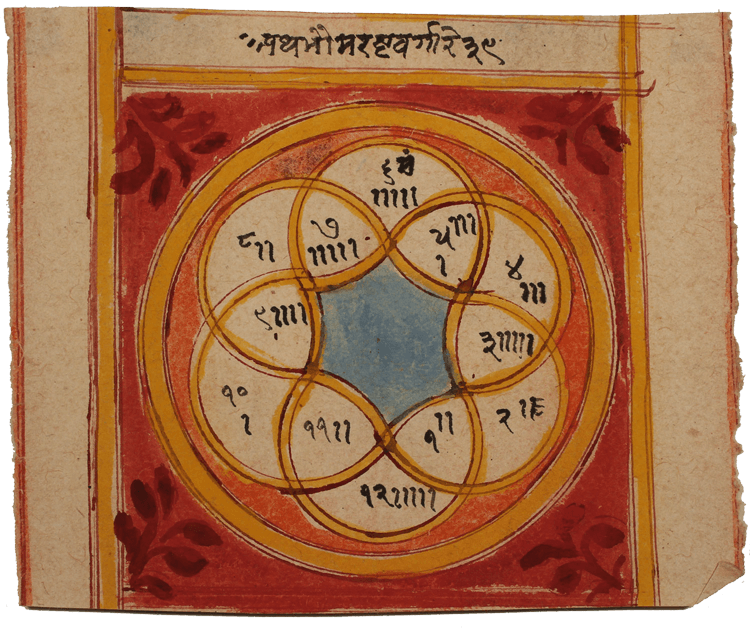 अथभौमरष्टवर्गारे३९
६ मं
।।।।।
७
।।।।।
५ ।।।
।
८ ।।
४
।।।
९ ।।।।
३ ।।।।।
१०
।
२ ।।
११ ।।
१ ।।
१२ ।।।।।